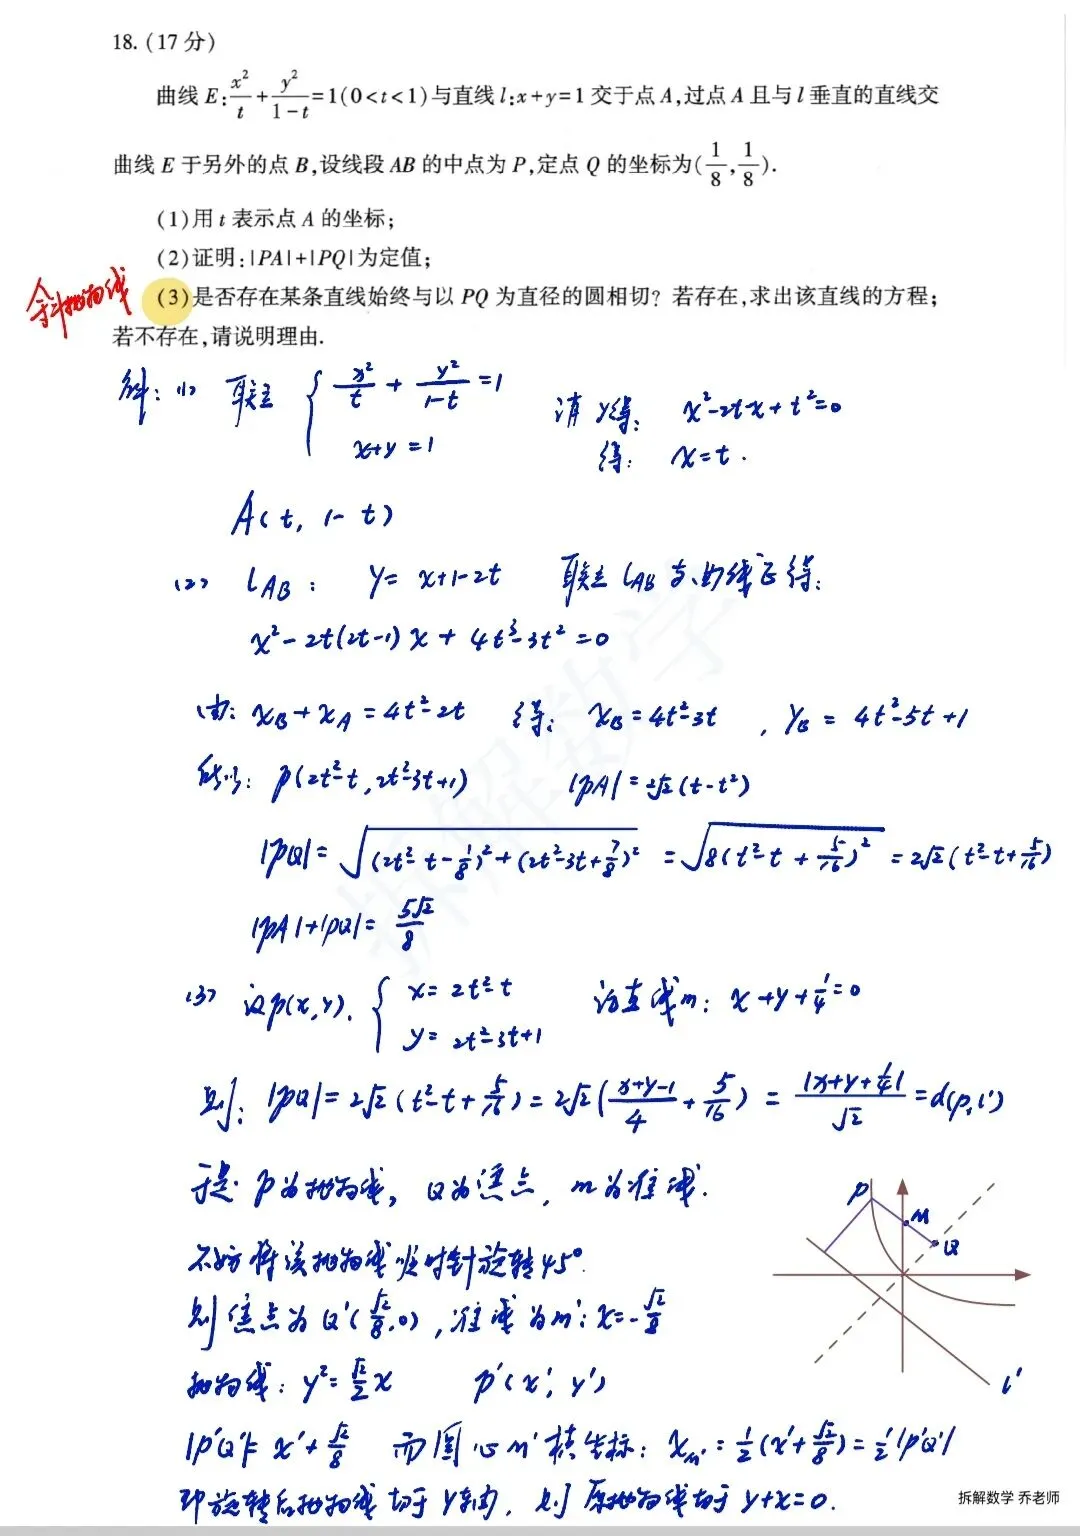 18. (17 分)
曲线 E: x²/t + y²/(1-t) = 1(0<t<1)与直线 l:x+y=1 交于点 A,过点 A 且与 l 垂直的直线交
曲线 E 于另外的点 B,设线段 AB 的中点为 P,定点 Q 的坐标为(1/8, 1/8).
(1)用 t 表示点 A 的坐标;
(2)证明:|PA|+|PQ|为定值;
余斗抛物线
(3)是否存在某条直线始终与以 PQ 为直径的圆相切? 若存在,求出该直线的方程;
若不存在,请说明理由.
解: (1) 联立 { x²/t + y²/(1-t) = 1 , x+y=1 消y得: x²-2tx+t²=0
得: x=t.
A(t, 1-t)
(2) l_AB: y= x+1-2t 联立 l_AB 与曲线E得:
x²-2t(2t-1)x + 4t³-3t²=0
由: x_B+x_A=4t²-2t 得: x_B=4t²-3t , y_B = 4t²-5t+1
所以: P(2t²-t, 2t²-3t+1) |PA|=√2(t-t²)
|PQ|= √((2t²-t-1/8)²+(2t²-3t+7/8)²) = √(8(t²-t+5/16)²) = 2√2(t²-t+5/16)
|PA|+|PQ|= 5√2/8
(3) 设P(x,y), { x=2t²-t , y=2t²-3t+1 设直线m: x+y+1/4=0
则: |PQ|=2√2(t²-t+5/16)=2√2((x+y-1)/4+5/16) = |x+y+1/4|/√2 =d(P,l')
于是 P为抛物线, Q为焦点, m为准线.
不妨将该抛物线顺时针旋转45°.
则焦点为Q'(√2/8,0), 准线为m': x=-√2/8
抛物线: y²=√2/2 x P'(x', y')
|P'Q'|= x'+√2/8 而圆心M'横坐标: x_M'=1/2(x'+√2/8)=1/2|P'Q'|
即旋转后抛物线切于y轴, 则原抛物线切于y+x=0.
P
M
Q
l'
拆解数学
拆解数学 乔老师